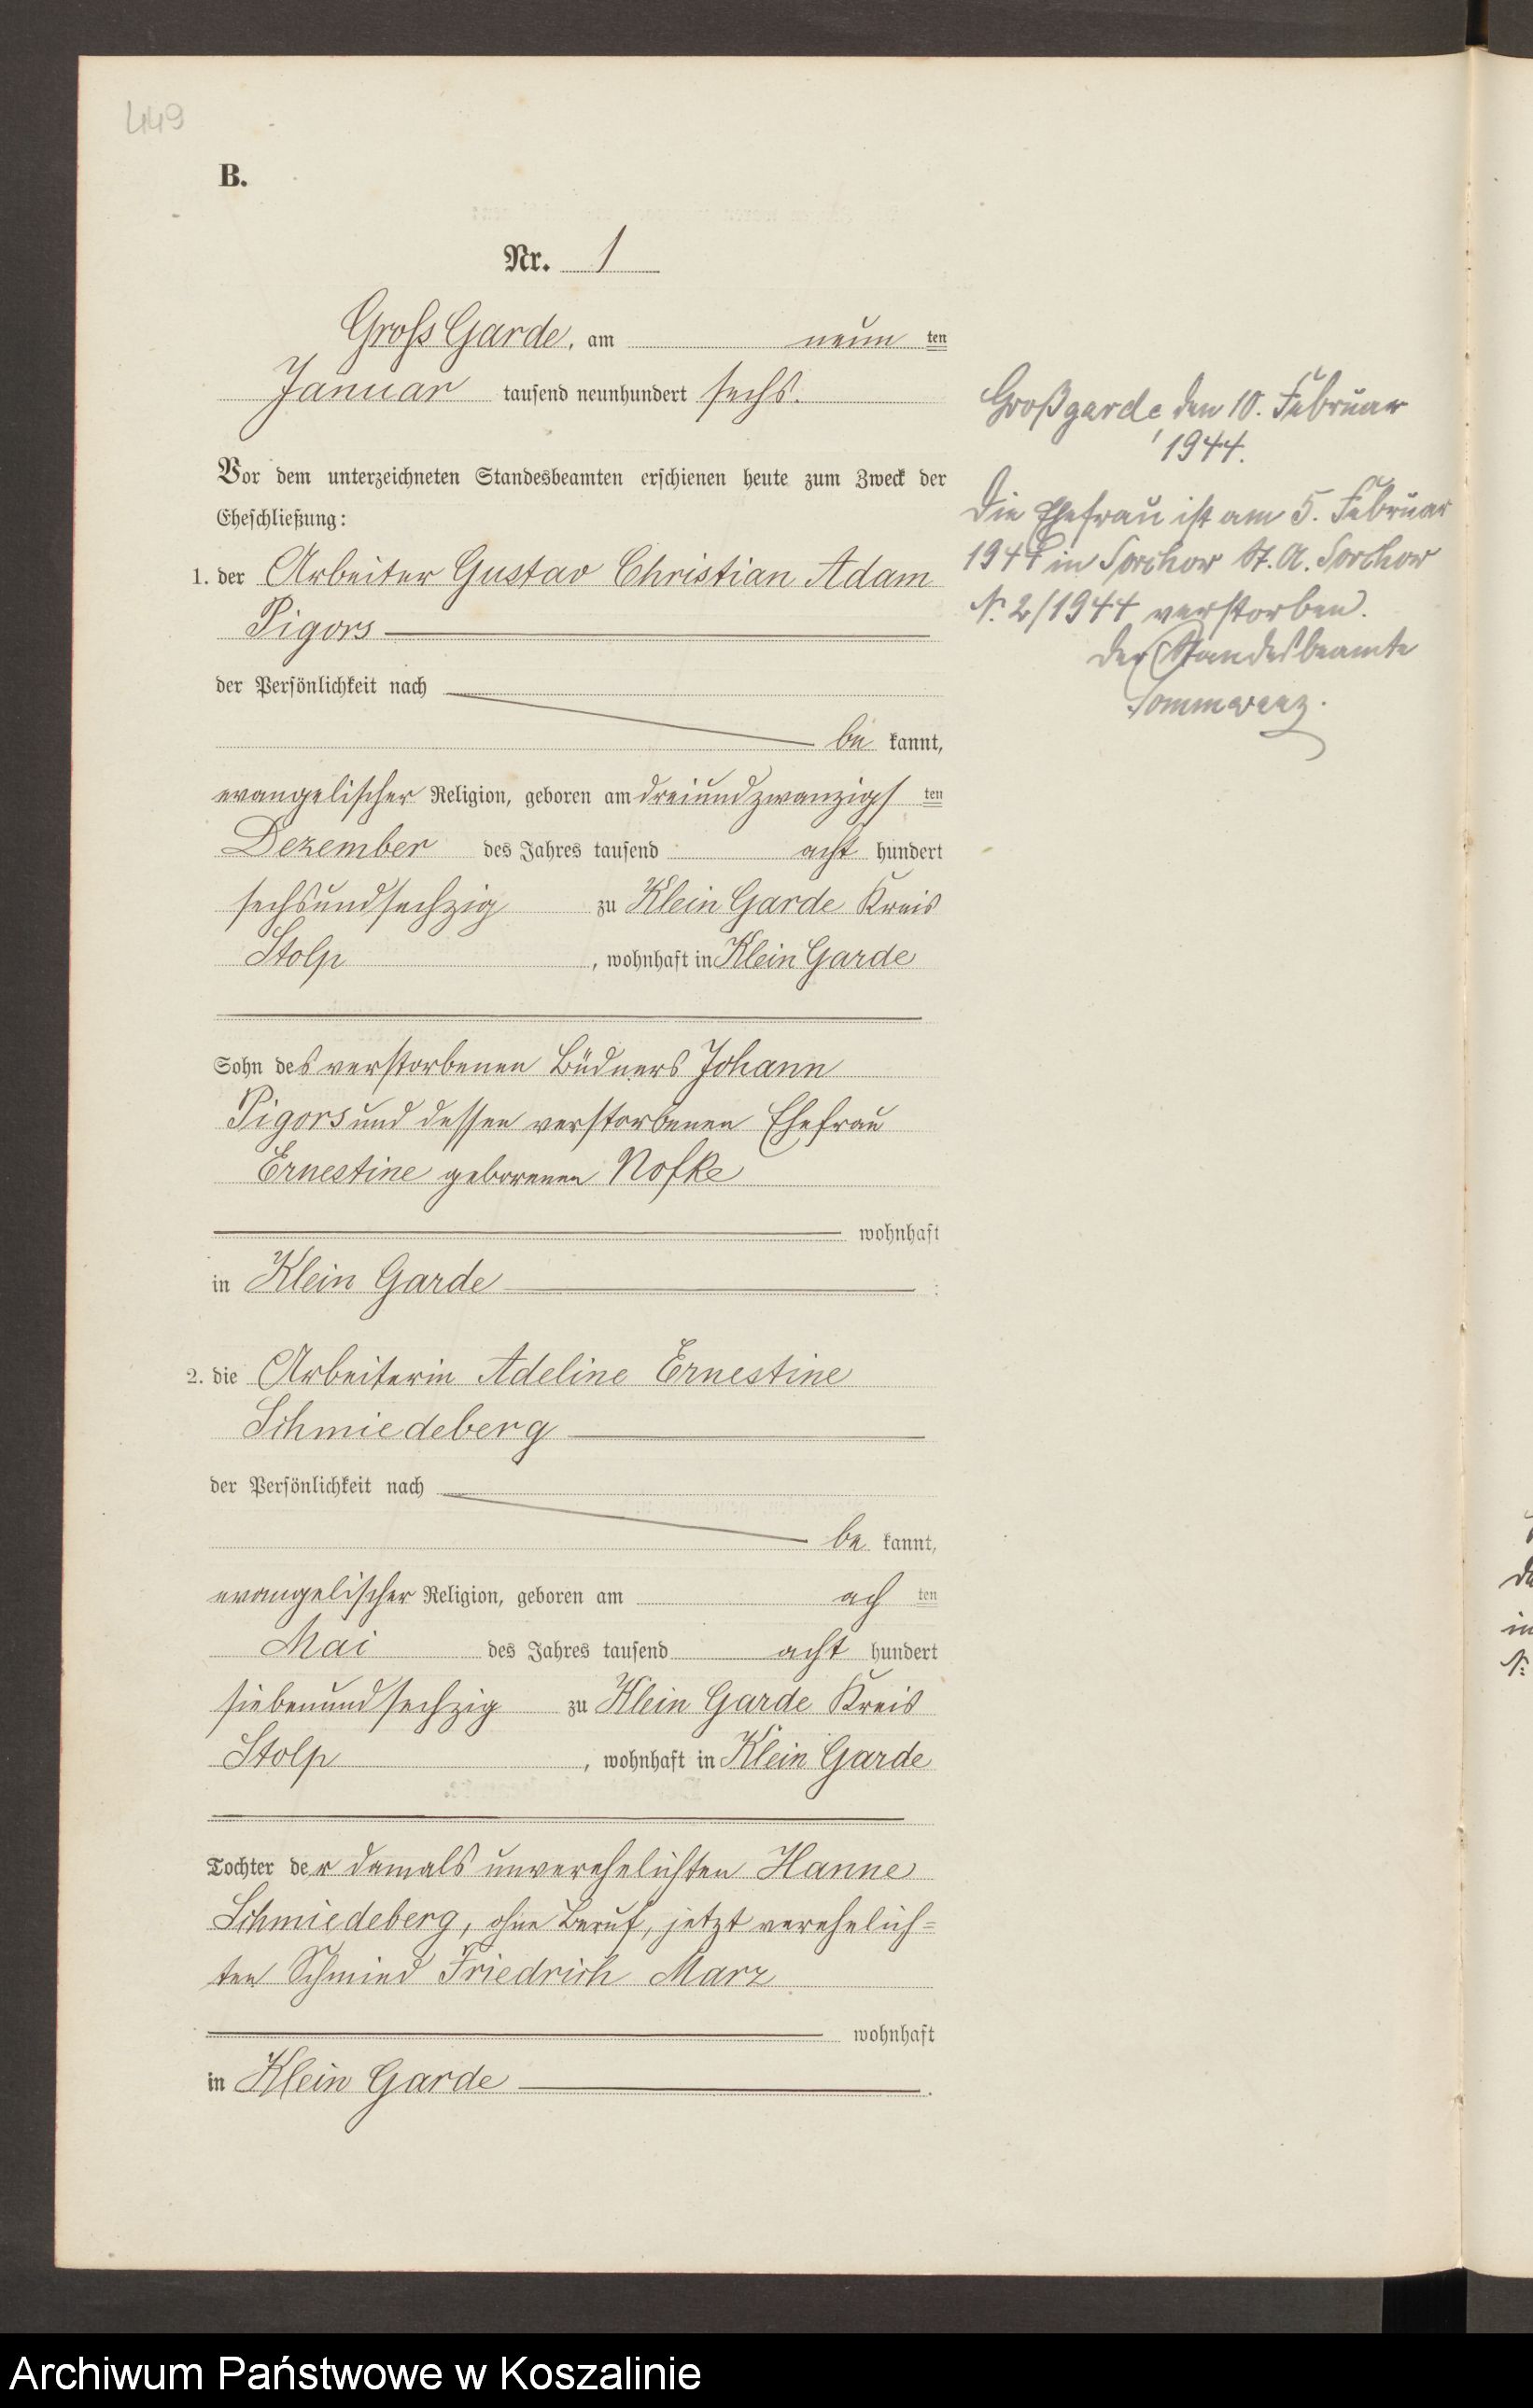 449
B.
Nr. 1
Gross Garde, am neun ten
Januar tausend neunhundert sechs.
Vor dem unterzeichneten Standesbeamten erschienen heute zum Zweck der
Eheschließung:
1. der Arbeiter Gustav Christian Adam
Pigors
der Persönlichkeit nach
be kannt,
evangelischer Religion, geboren am dreiundzwanzigs ten
Dezember des Jahres tausend acht hundert
sechsundsechzig zu Klein Garde Kreis
Stolp, wohnhaft in Klein Garde
Sohn des verstorbenen Büdners Johann
Pigors und dessen verstorbenen Ehefrau
Ernestine geborenen Noffke
wohnhaft
in Klein Garde
2. die Arbeiterin Adeline Ernestine
Schmiedeberg
der Persönlichkeit nach
be kannt,
evangelischer Religion, geboren am ach ten
Mai des Jahres tausend acht hundert
siebenundsechzig zu Klein Garde Kreis
Stolp, wohnhaft in Klein Garde
Tochter der damals unverehelichten Hanne
Schmiedeberg, ohne Beruf, jetzt verehelich=
ten Schmied Friedrich Marz
wohnhaft
in Klein Garde.
Großgarde, den 10. Februar
1944.
Die Ehefrau ist am 5. Februar
1944 in Sorchow St. A. Sorchow
Nr. 2/1944 verstorben.
Der Standesbeamte
Archiwum Państwowe w Koszalinie